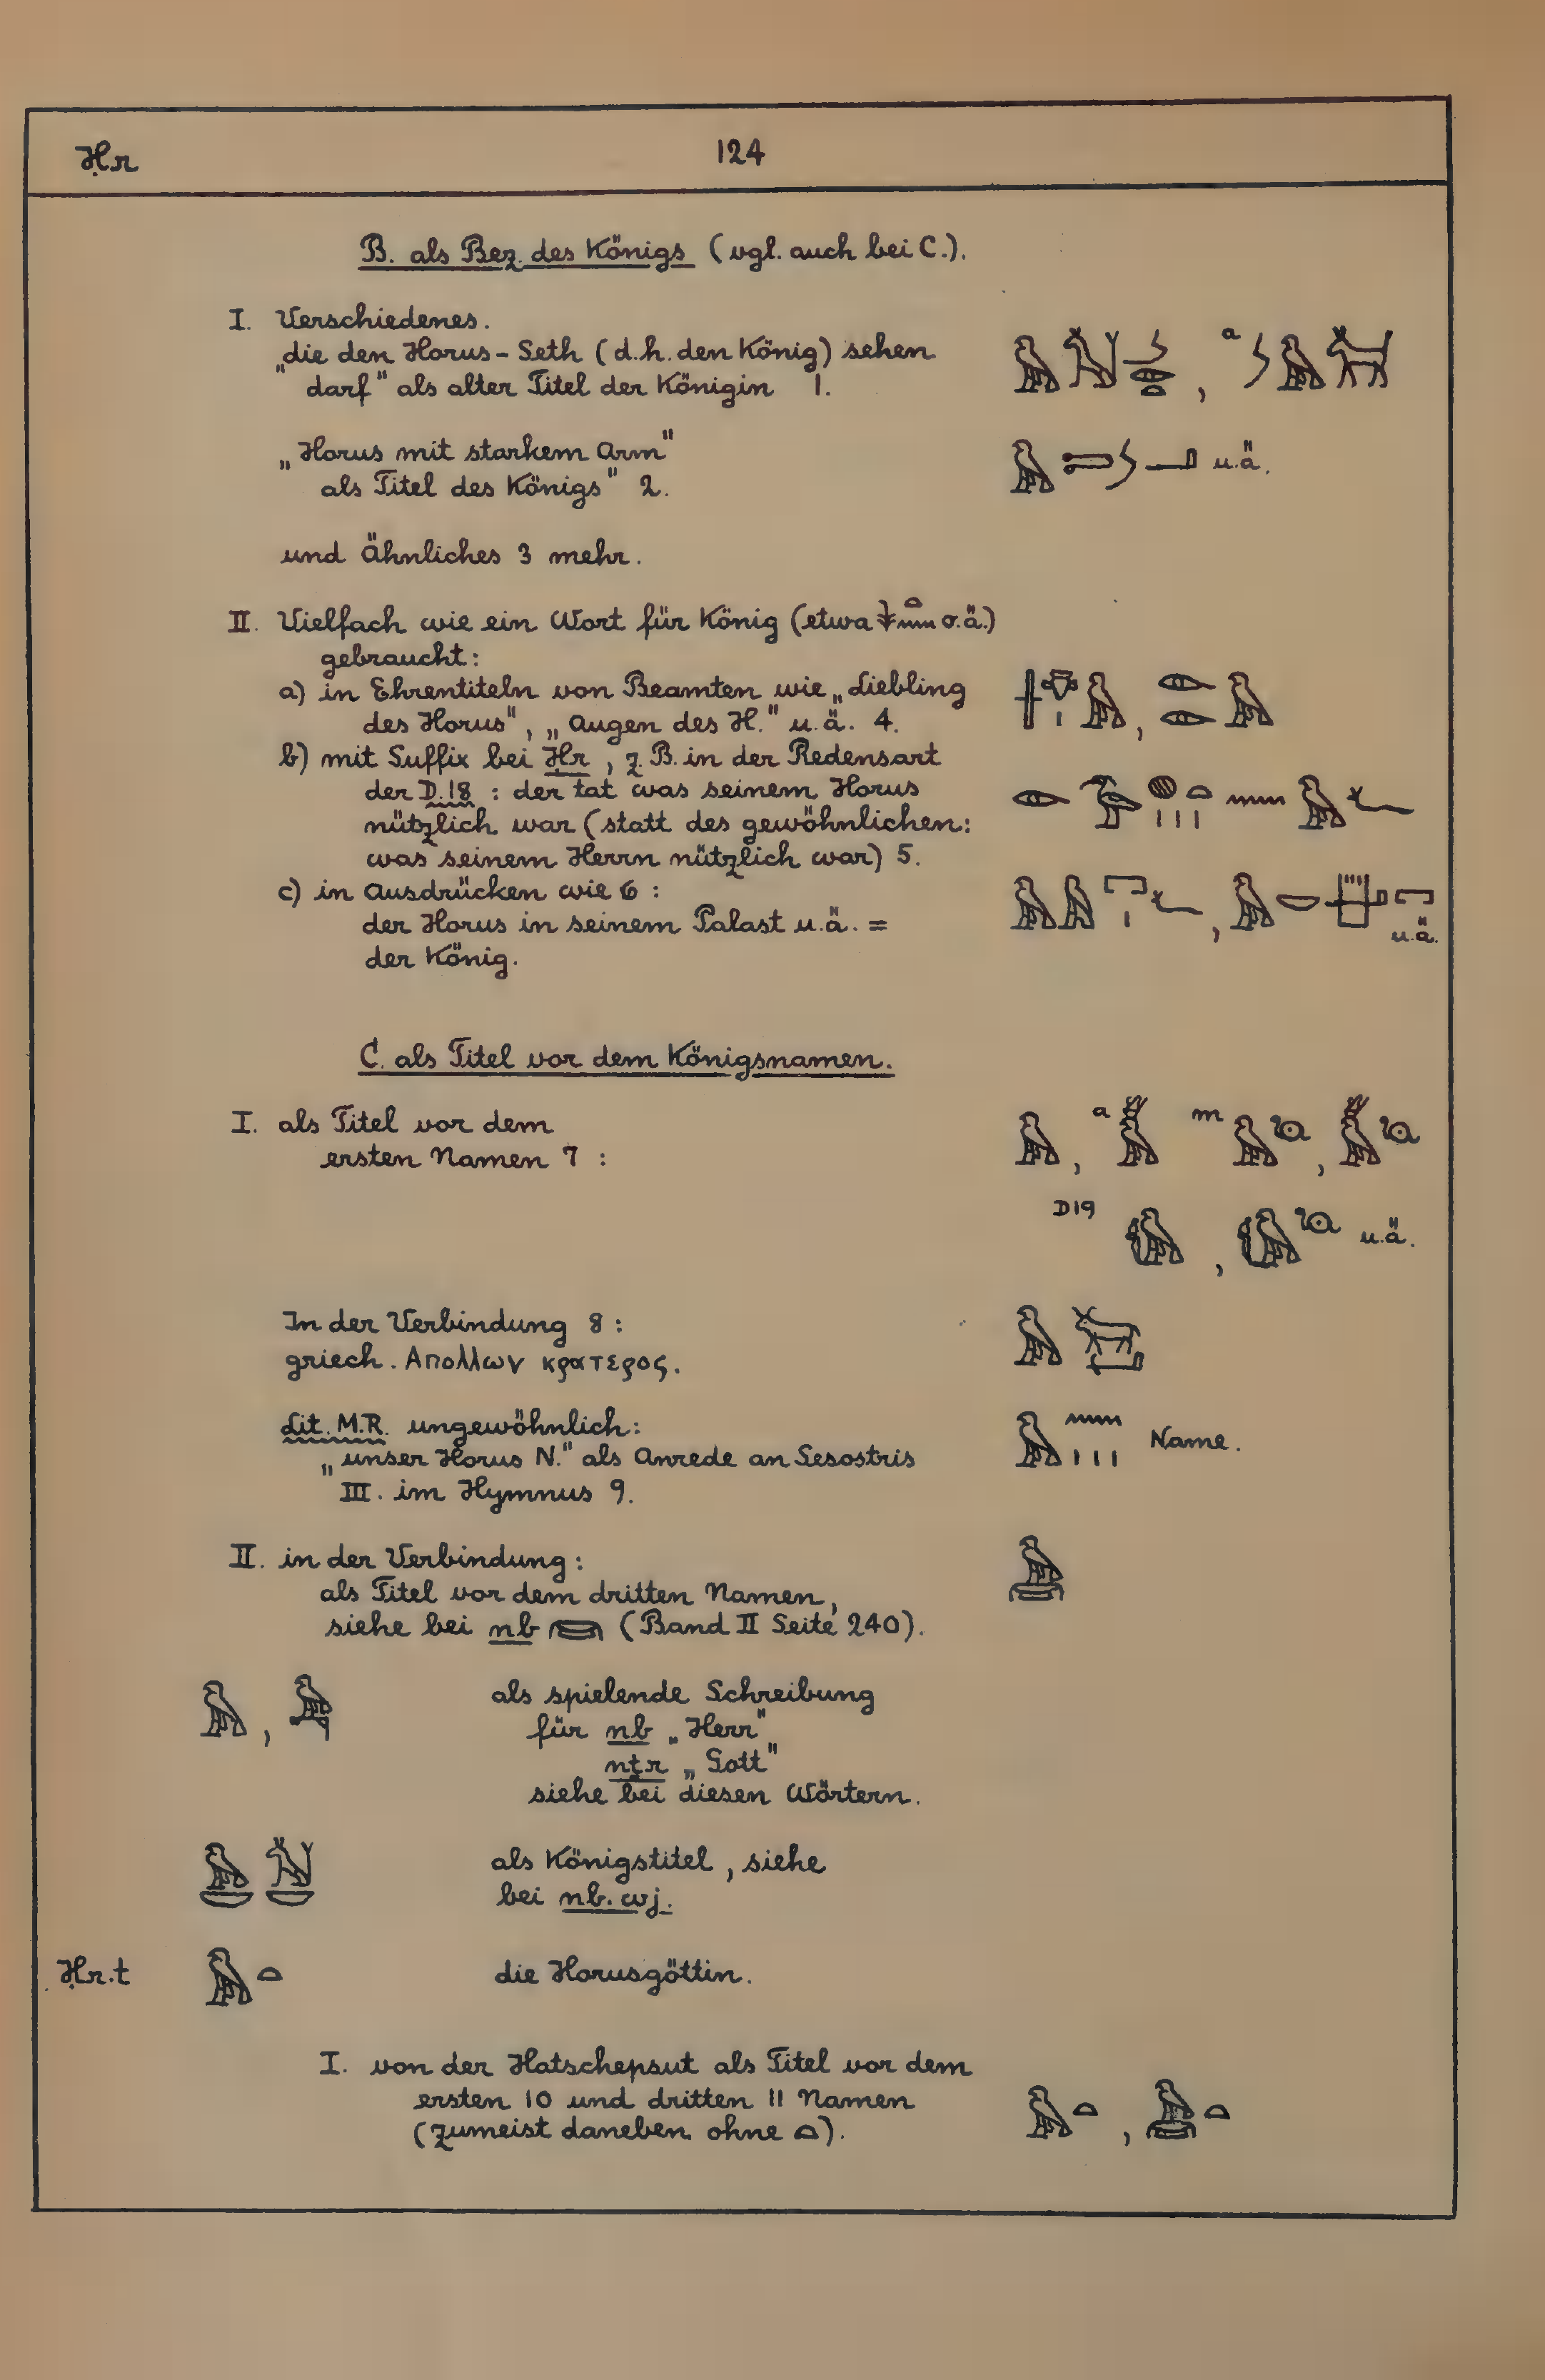 Ḥr
124
B. als Bez. des Königs (vgl. auch bei C.).
I. Verschiedenes.
„die den Horus-Seth (d.h. den König) sehen
darf" als alter Titel der Königin 1.
a
„Horus mit starkem Arm"
als Titel des Königs" 2.
u.ä.
und Ähnliches 3 mehr.
II. Vielfach wie ein Wort für König (etwa o.ä.)
gebraucht:
a) in Ehrentiteln von Beamten wie „Liebling
des Horus", „Augen des H." u.ä. 4.
b) mit Suffix bei Ḥr, z.B. in der Redensart
der D.18 : der tat was seinem Horus
nützlich war (statt des gewöhnlichen:
was seinem Herrn nützlich war) 5.
c) in Ausdrücken wie 6 :
der Horus in seinem Palast u.ä. =
u.ä.
der König.
C. als Titel vor dem Königsnamen.
I. als Titel vor dem
a m
ersten Namen 7 :
D19
u.ä.
In der Verbindung 8 :
griech. Απολλων κρατερος.
Lit. M.R. ungewöhnlich:
Name.
„unser Horus N." als Anrede an Sesostris
III. im Hymnus 9.
II. in der Verbindung:
als Titel vor dem dritten Namen,
siehe bei nb (Band II Seite 240).
als spielende Schreibung
für nb „Herr"
nṯr „Gott"
siehe bei diesen Wörtern.
als Königstitel, siehe
bei nb.wj.
Ḥr.t die Horusgöttin.
I. von der Hatschepsut als Titel vor dem
ersten 10 und dritten 11 Namen
(zumeist daneben ohne ).